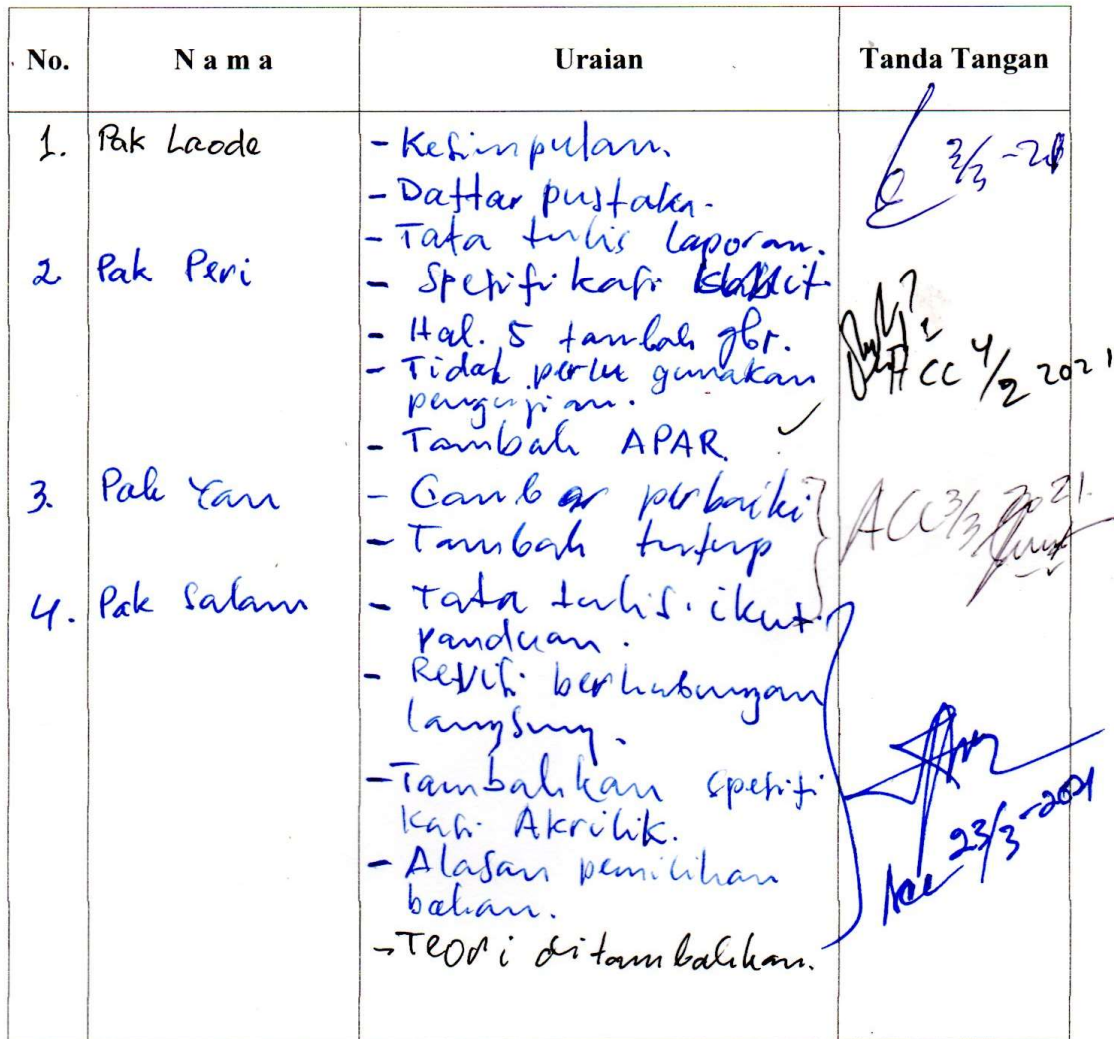 No. Nama Uraian Tanda Tangan
1. Pak Laode - Kesimpulan. 3/3 -21
- Daftar pustaka.
- Tata tulis laporan.
2 Pak Peri - Spesifikasi
- Hal. 5 tambah gbr.
- Tidak perlu gunakan
pengujian. ACC 4/2 2021
- Tambah APAR.
3. Pak Yan - Gambar perbaiki ACC 3/3 2021
- Tambah tutup
4. Pak Salam - Tata tulis. ikut
panduan.
- Revisi berhubungan
langsung.
- Tambahkan spesifi
kasi Akrilik.
- Alasan pemilihan
bahan. Acc 23/3-2021
- Teori ditambahkan.